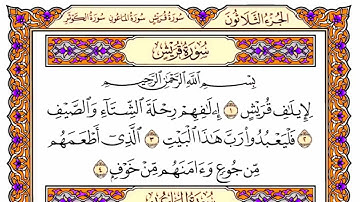 الجزء الثلاثون سورة قريش سورة الماعون سورة الكوثر
سُورَةُ قُرَيْشٍ
بِسْمِ ٱللَّهِ ٱلرَّحْمَٰنِ ٱلرَّحِيمِ
لِإِيلَٰفِ قُرَيْشٍ ١ إِۦلَٰفِهِمْ رِحْلَةَ ٱلشِّتَآءِ وَٱلصَّيْفِ
٢ فَلْيَعْبُدُوا۟ رَبَّ هَٰذَا ٱلْبَيْتِ ٣ ٱلَّذِىٓ أَطْعَمَهُم
مِّن جُوعٍ وَءَامَنَهُم مِّنْ خَوْفٍۭ ٤